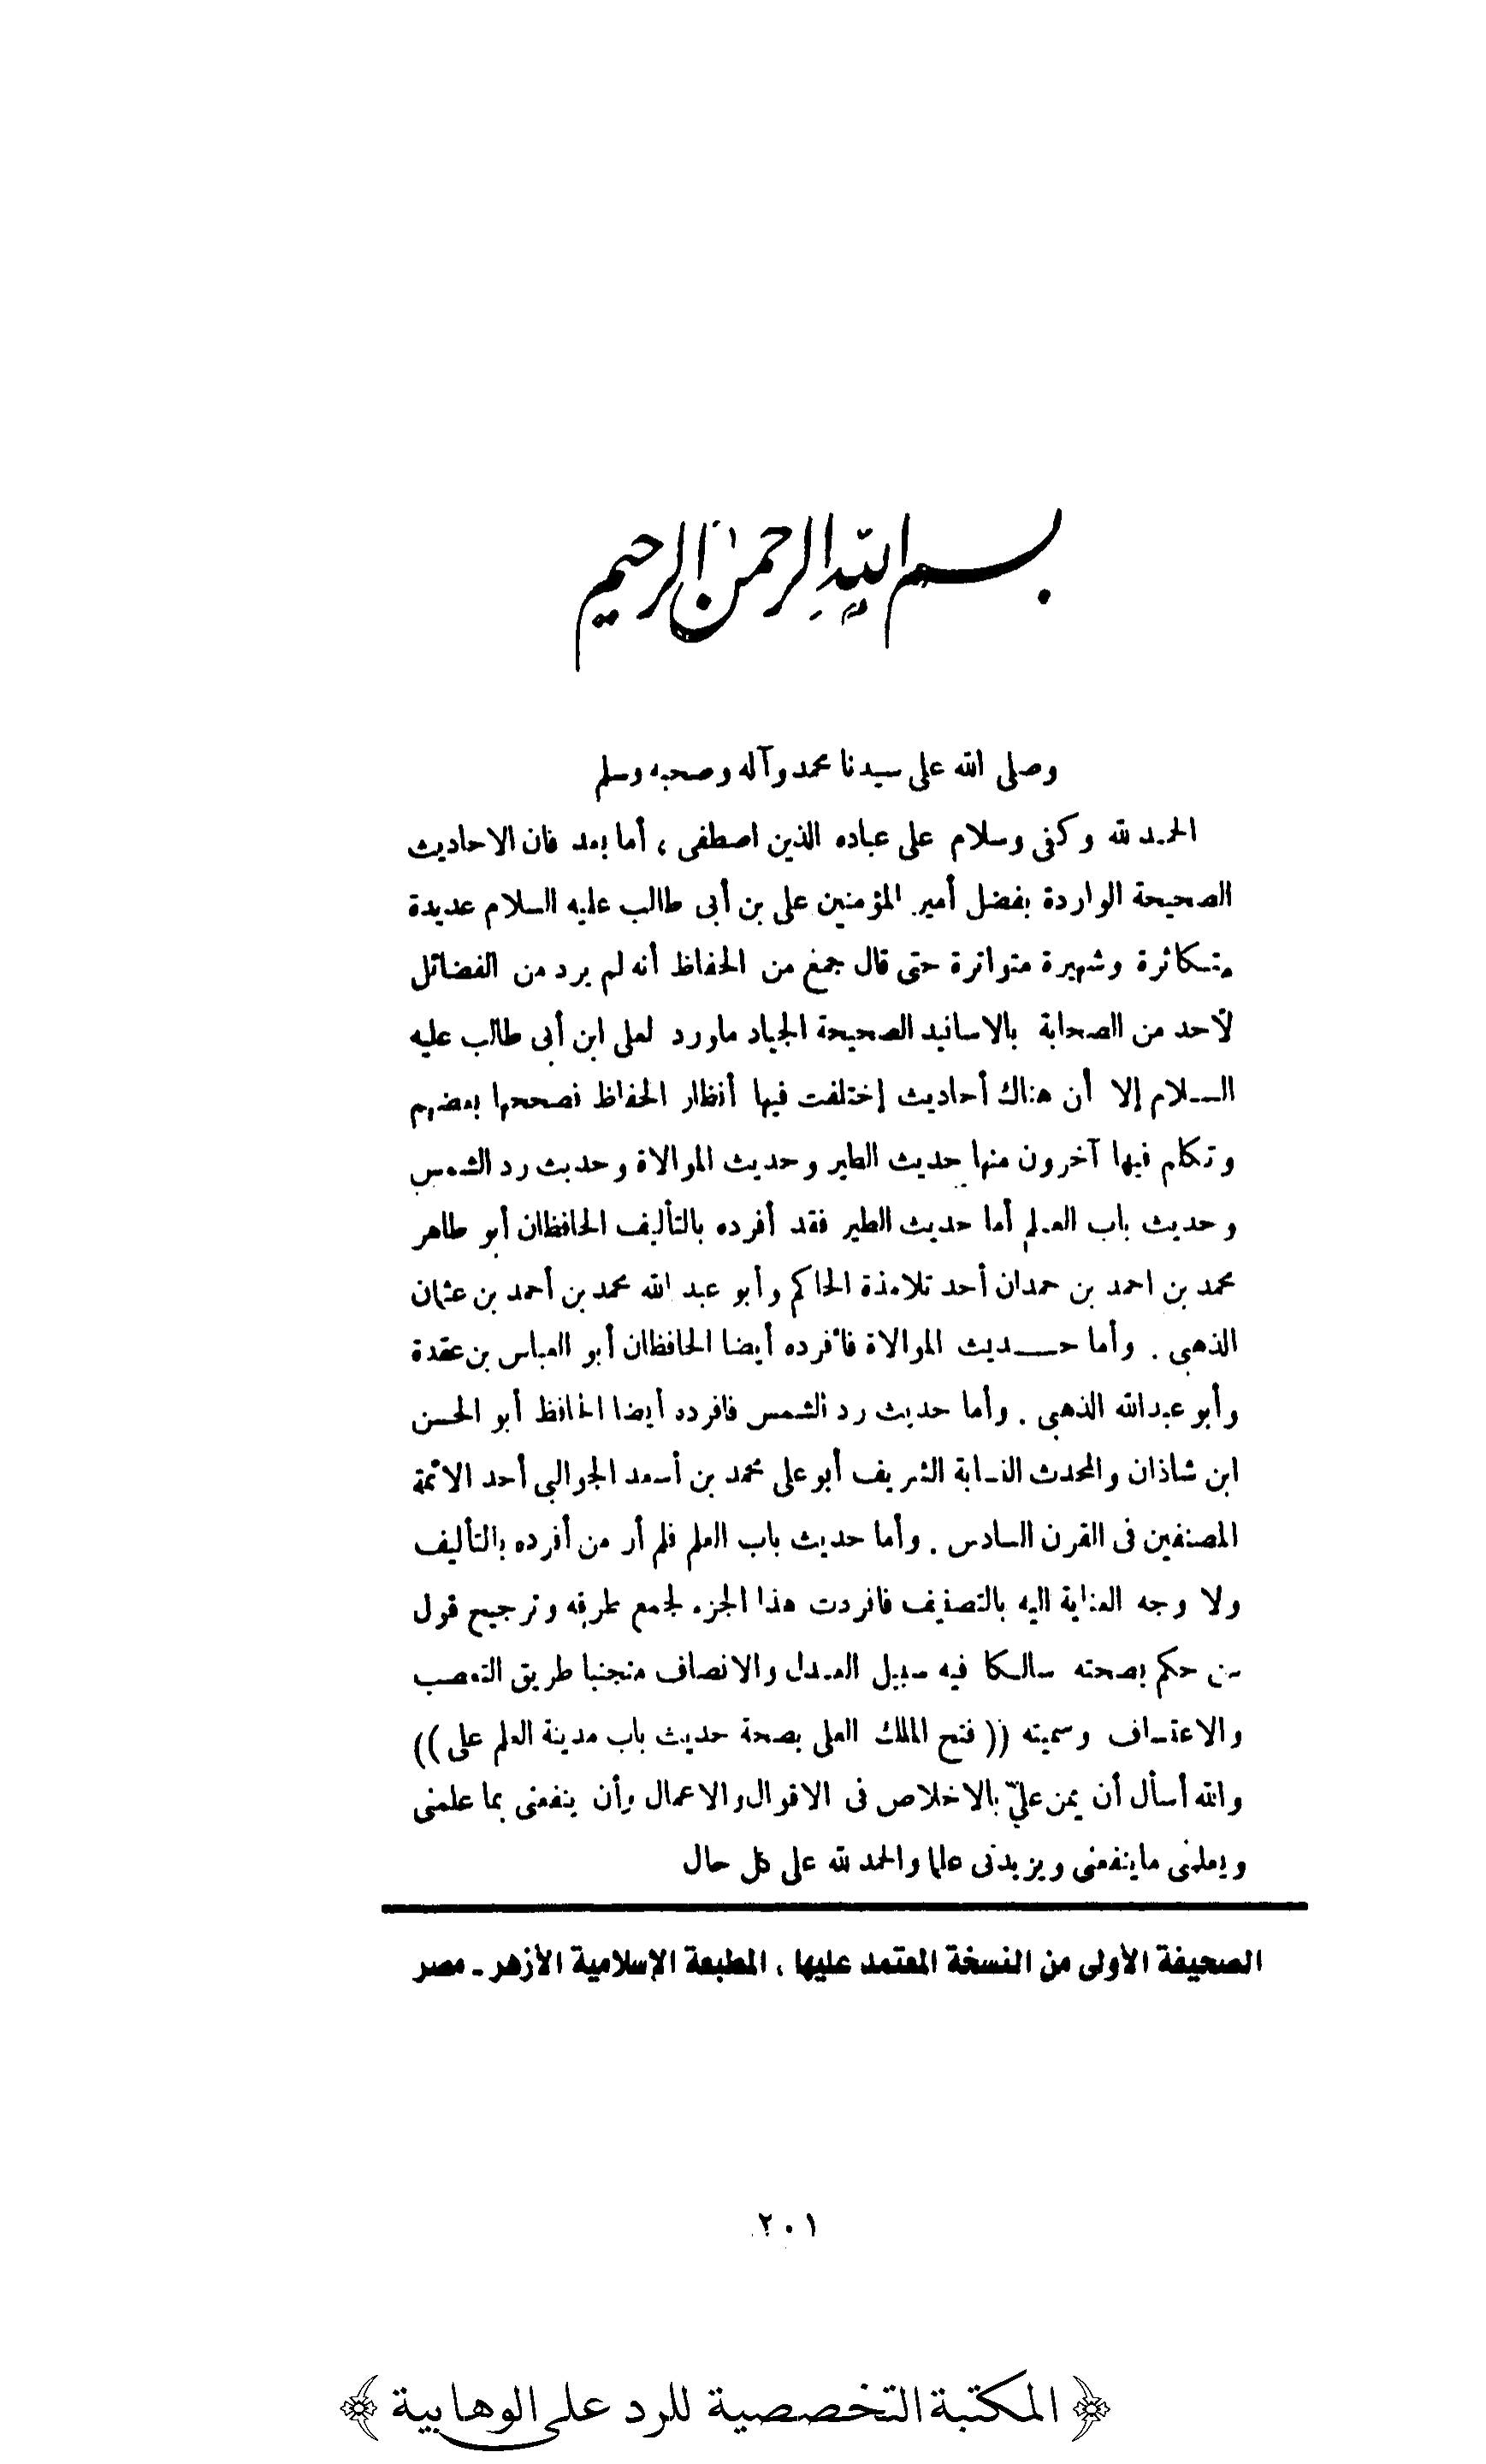 بسم الله الرحمن الرحيم
وصلى الله على سيدنا محمد وآله وصحبه وسلم
الحمد لله وكفى وسلام على عباده الذين اصطفى ، أما بعد فان الاحاديث
الصحيحة الواردة بفضل أمير المؤمنين على بن أبى طالب عليه السلام عديدة
متكاثرة وشهيرة متواترة حتى قال جمع من الحفاظ أنه لم يرد من الفضائل
لأحد من الصحابة بالاسانيد الصحيحة الجياد ماورد لعلى ابن أبى طالب عليه
السلام إلا أن هناك أحاديث إختلفت فيها أنظار الحفاظ فصححها بعضهم
وتكلم فيها آخرون منها حديث الطير وحديث الموالاة وحديث رد الشمس
وحديث باب العلم أما حديث الطير فقد أفرده بالتأليف الحافظان أبو طاهر
محمد بن احمد بن حمدان أحد تلامذة الحاكم وأبو عبد الله محمد بن أحمد بن عثمان
الذهبى . وأما حديث الموالاة فأفرده أيضا الحافظان أبو العباس بن عقدة
وأبو عبدالله الذهبى . وأما حديث رد الشمس فافرده أيضا الحافظ أبو الحسن
ابن شاذان والمحدث النسابة الشريف أبو على محمد بن أسعد الجوالبي أحد الائمة
المصنفين فى القرن السادس . وأما حديث باب العلم فلم أر من أفرده بالتأليف
ولا وجه العناية اليه بالتصنيف فافردت هذا الجزء لجمع طرقه وترجيح قول
من حكم بصحته سالكا فيه سبيل العدل والانصاف متجنبا طريق التعصب
والاعتساف وسميته (( فتح الملك العلى بصحة حديث باب مدينة العلم على ))
والله أسأل أن يمن علىّ بالاخلاص فى الاقوال والاعمال وأن ينفعنى بما علمنى
ويعلمنى ماينفعنى ويزيدنى علما والحمد لله على كل حال
الصحيفة الأولى من النسخة المعتمد عليها ، المطبعة الإسلامية الأزهر ـ مصر
٢٠١
﴿ المكتبة التخصصية للرد على الوهابية ﴾